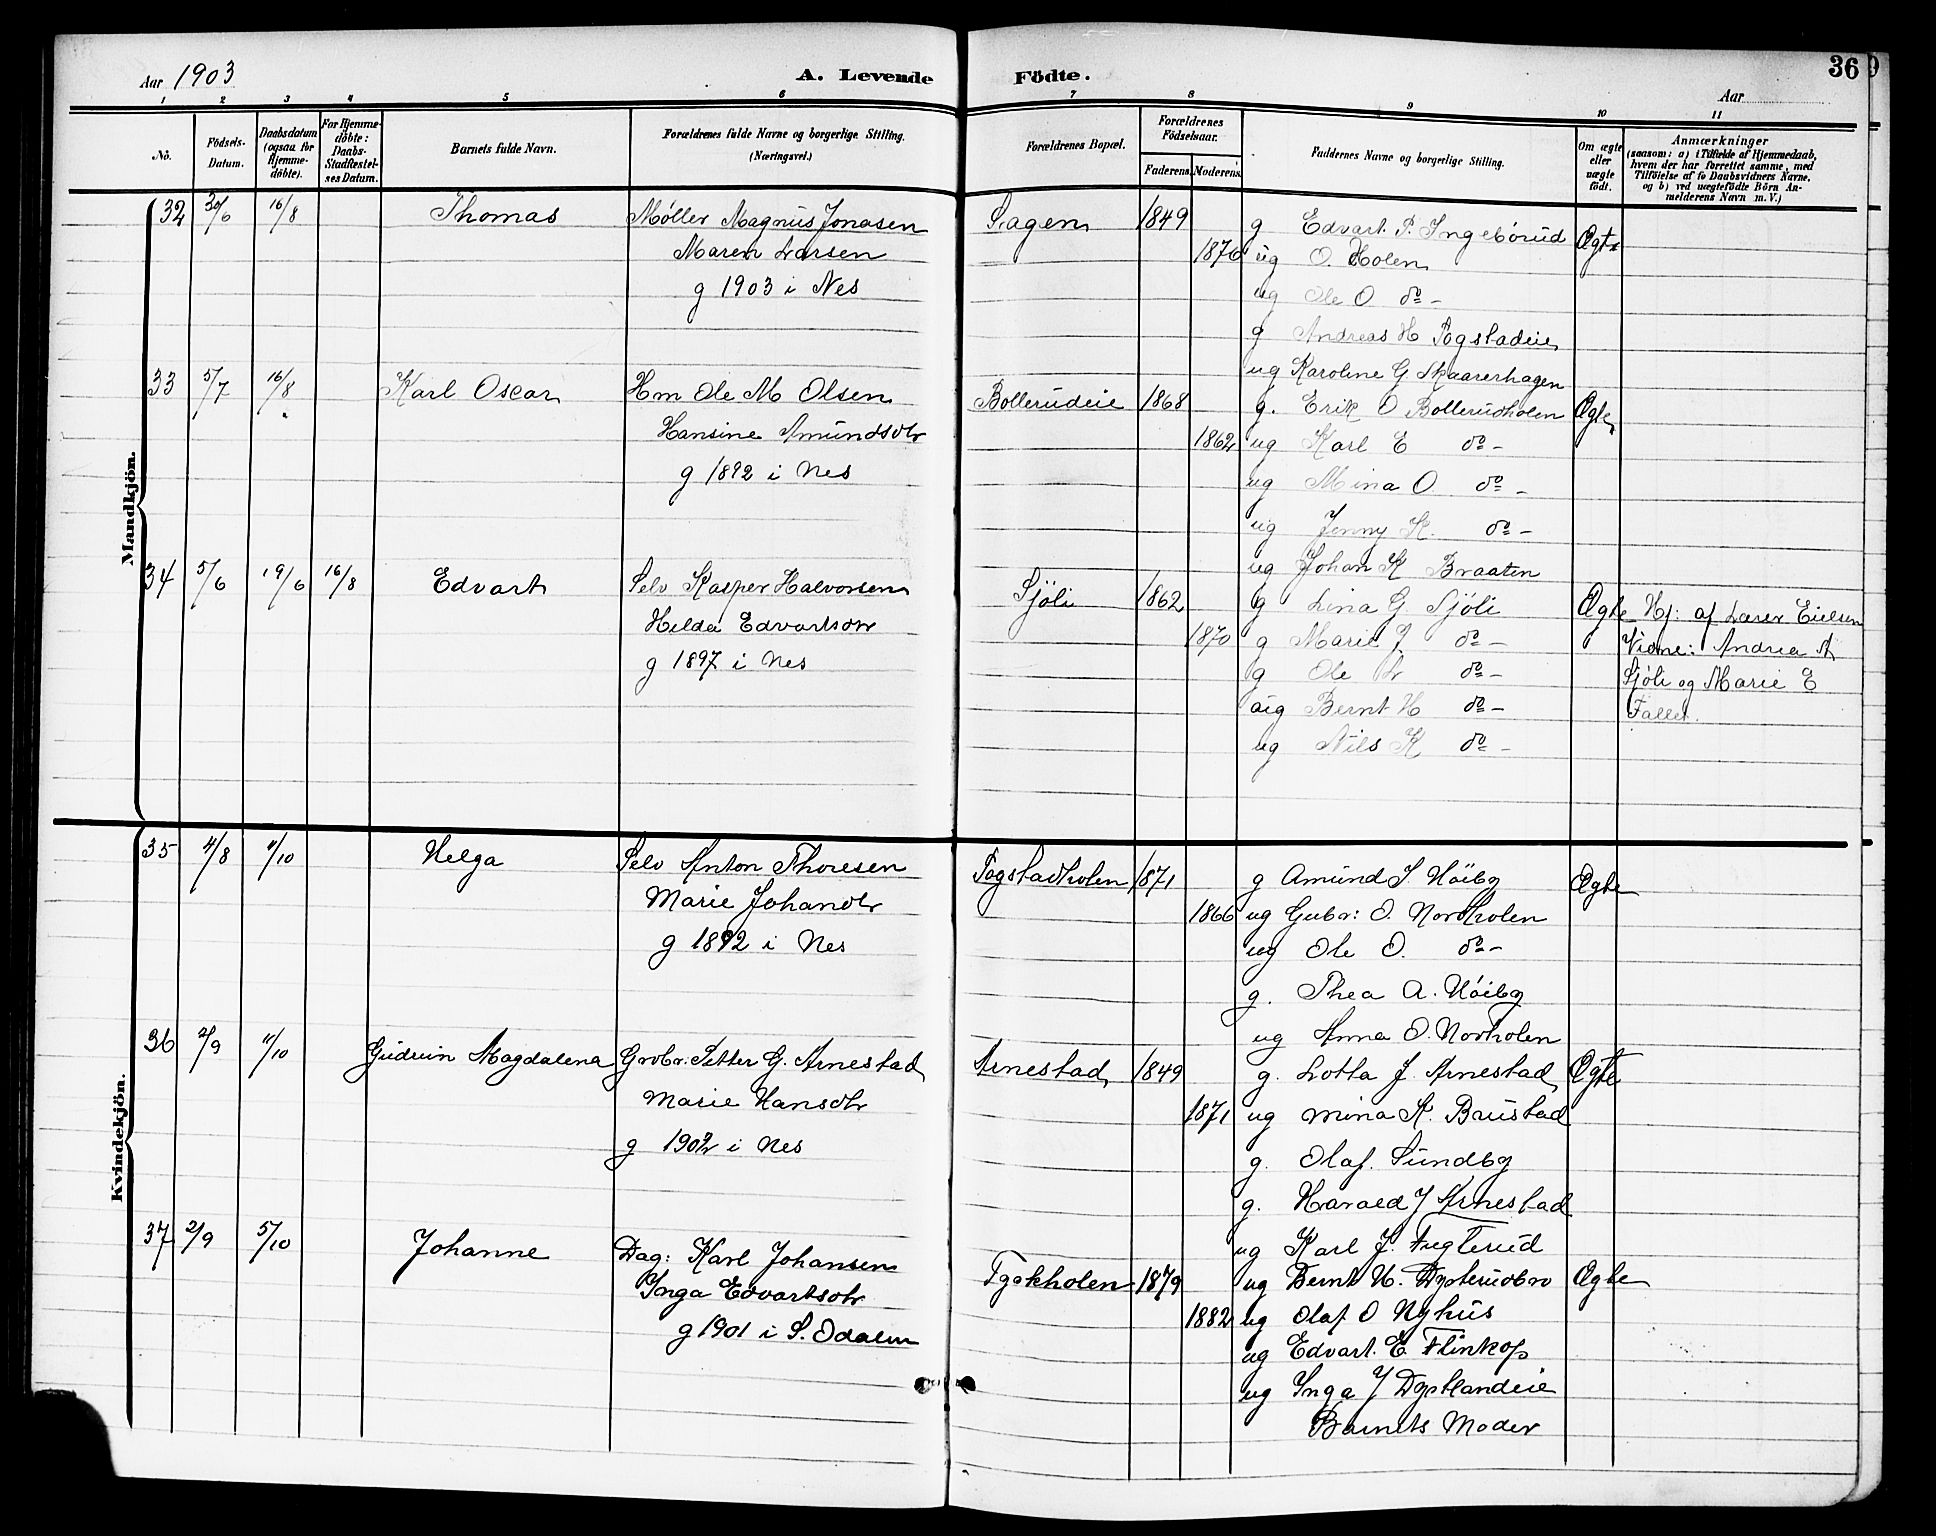 Aar 1903
A. Levende Födte.
36
Aar
1 2 3 4 5 6 7 8 9 10 11
No.
Födsels-Datum.
Daabsdatum (ogsaa for Hjemme-döbte).
For Hjemme-döbte: Daabs-Stadfæstel-ses Datum.
Barnets fulde Navn.
Forældrenes fulde Navne og borgerlige Stilling.
(Næringsvei.)
Forældrenes Bopæl.
Forældrenes Födselsaar.
Faderens. Moderens.
Faddernes Navne og borgerlige Stilling.
Om ægte eller uægte födt.
Anmærkninger
(saasom: a) i Tilfælde af Hjemmedaab,
hvem der har forrettet samme, med
Tilföielse af to Daabsvidners Navne,
og b) ved uægtefödte Börn An-
melderens Navn m. V.)
Mandkjön.
32 30/6 16/8 Thomas Møller Magnus Jonasen Sagen 1849 g Edvart P. Ingebörud Ægte
Maren Larsen 1876 ug O. Holen
g 1903 i Nes ug Ole O do -
g Andreas H Fogstadeie
ug Karoline G Skaarerhagen
33 5/7 16/8 Karl Oscar Hm Ole M Olsen Bollerudeie 1868 g. Erik O Bollerudholen Ægte
Hansine Amundsdtr 1862 ug Karl E do -
g 1892 i Nes ug Mina O do -
ug Jenny K. do -
ug Johan K Braaten
34 5/6 19/6 16/8 Edvart Selv Kasper Halvorsen Sjöli 1862 g Lina G Sjöli Ægte Hj: af Lærer Eielsen
Hilda Edvartsdtr 1870 g Marie J. do - Vidne: Andrea A
g 1897 i Nes g Ole L do - Sjöli og Marie E
ug Bernt H do - Fallet.
ug Nils K do -
Kvindekjön.
35 4/8 4/10 Helga Selv Anton Thoresen Fogstadholen 1871 g Amund S. Höiby Ægte
Marie Johansdtr 1866 ug Gubr: O. Nordholen
g 1892 i Nes ug Ole O. do -
g. Thea A. Höiby
ug Anna O. Nordholen
36 2/9 4/10 Gudrun Magdalena Grdbr. Petter G. Arnestad Arnestad 1849 g. Lotta J. Arnestad Ægte
Marie Hansdtr 1871 ug Mina K. Brustad
g 1902 i Nes g. Olaf. Sundby
g. Harald J Arnestad
ug Karl J. Fuglerud
37 2/9 5/10 Johanne Dag: Karl Johansen Tyskholen 1879 ug Bernt H. Dysterudbro Ægte
Inga Edvartsdtr 1882 ug Olaf O Nyhus
g 1901 i S. Odalen ug Edvart. E Flinkop
ug Inga J Dystlandeie
Barnets Moder